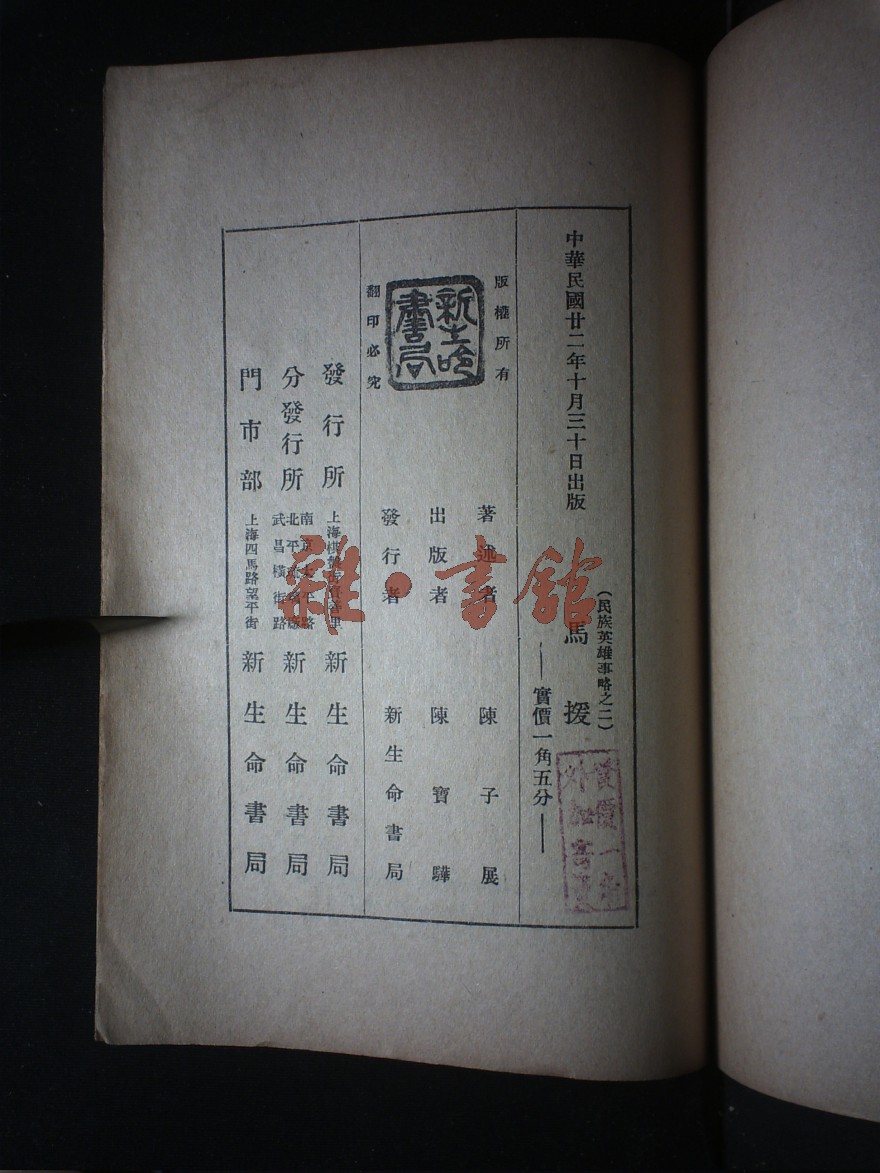 中華民國廿二年十月三十日出版
(民族英雄事略之二)
馬援
——實價一角五分——
版權所有
新生命書局
翻印必究
著述者 陳子展
出版者 陳寶驊
發行者 新生命書局
發行所 上海棋盤街寶善里 新生命書局
分發行所 南京太平路 北平琉璃廠 武昌橫街路 新生命書局
門市部 上海四馬路望平街 新生命書局
實價一律
外加寄費
雜·書館